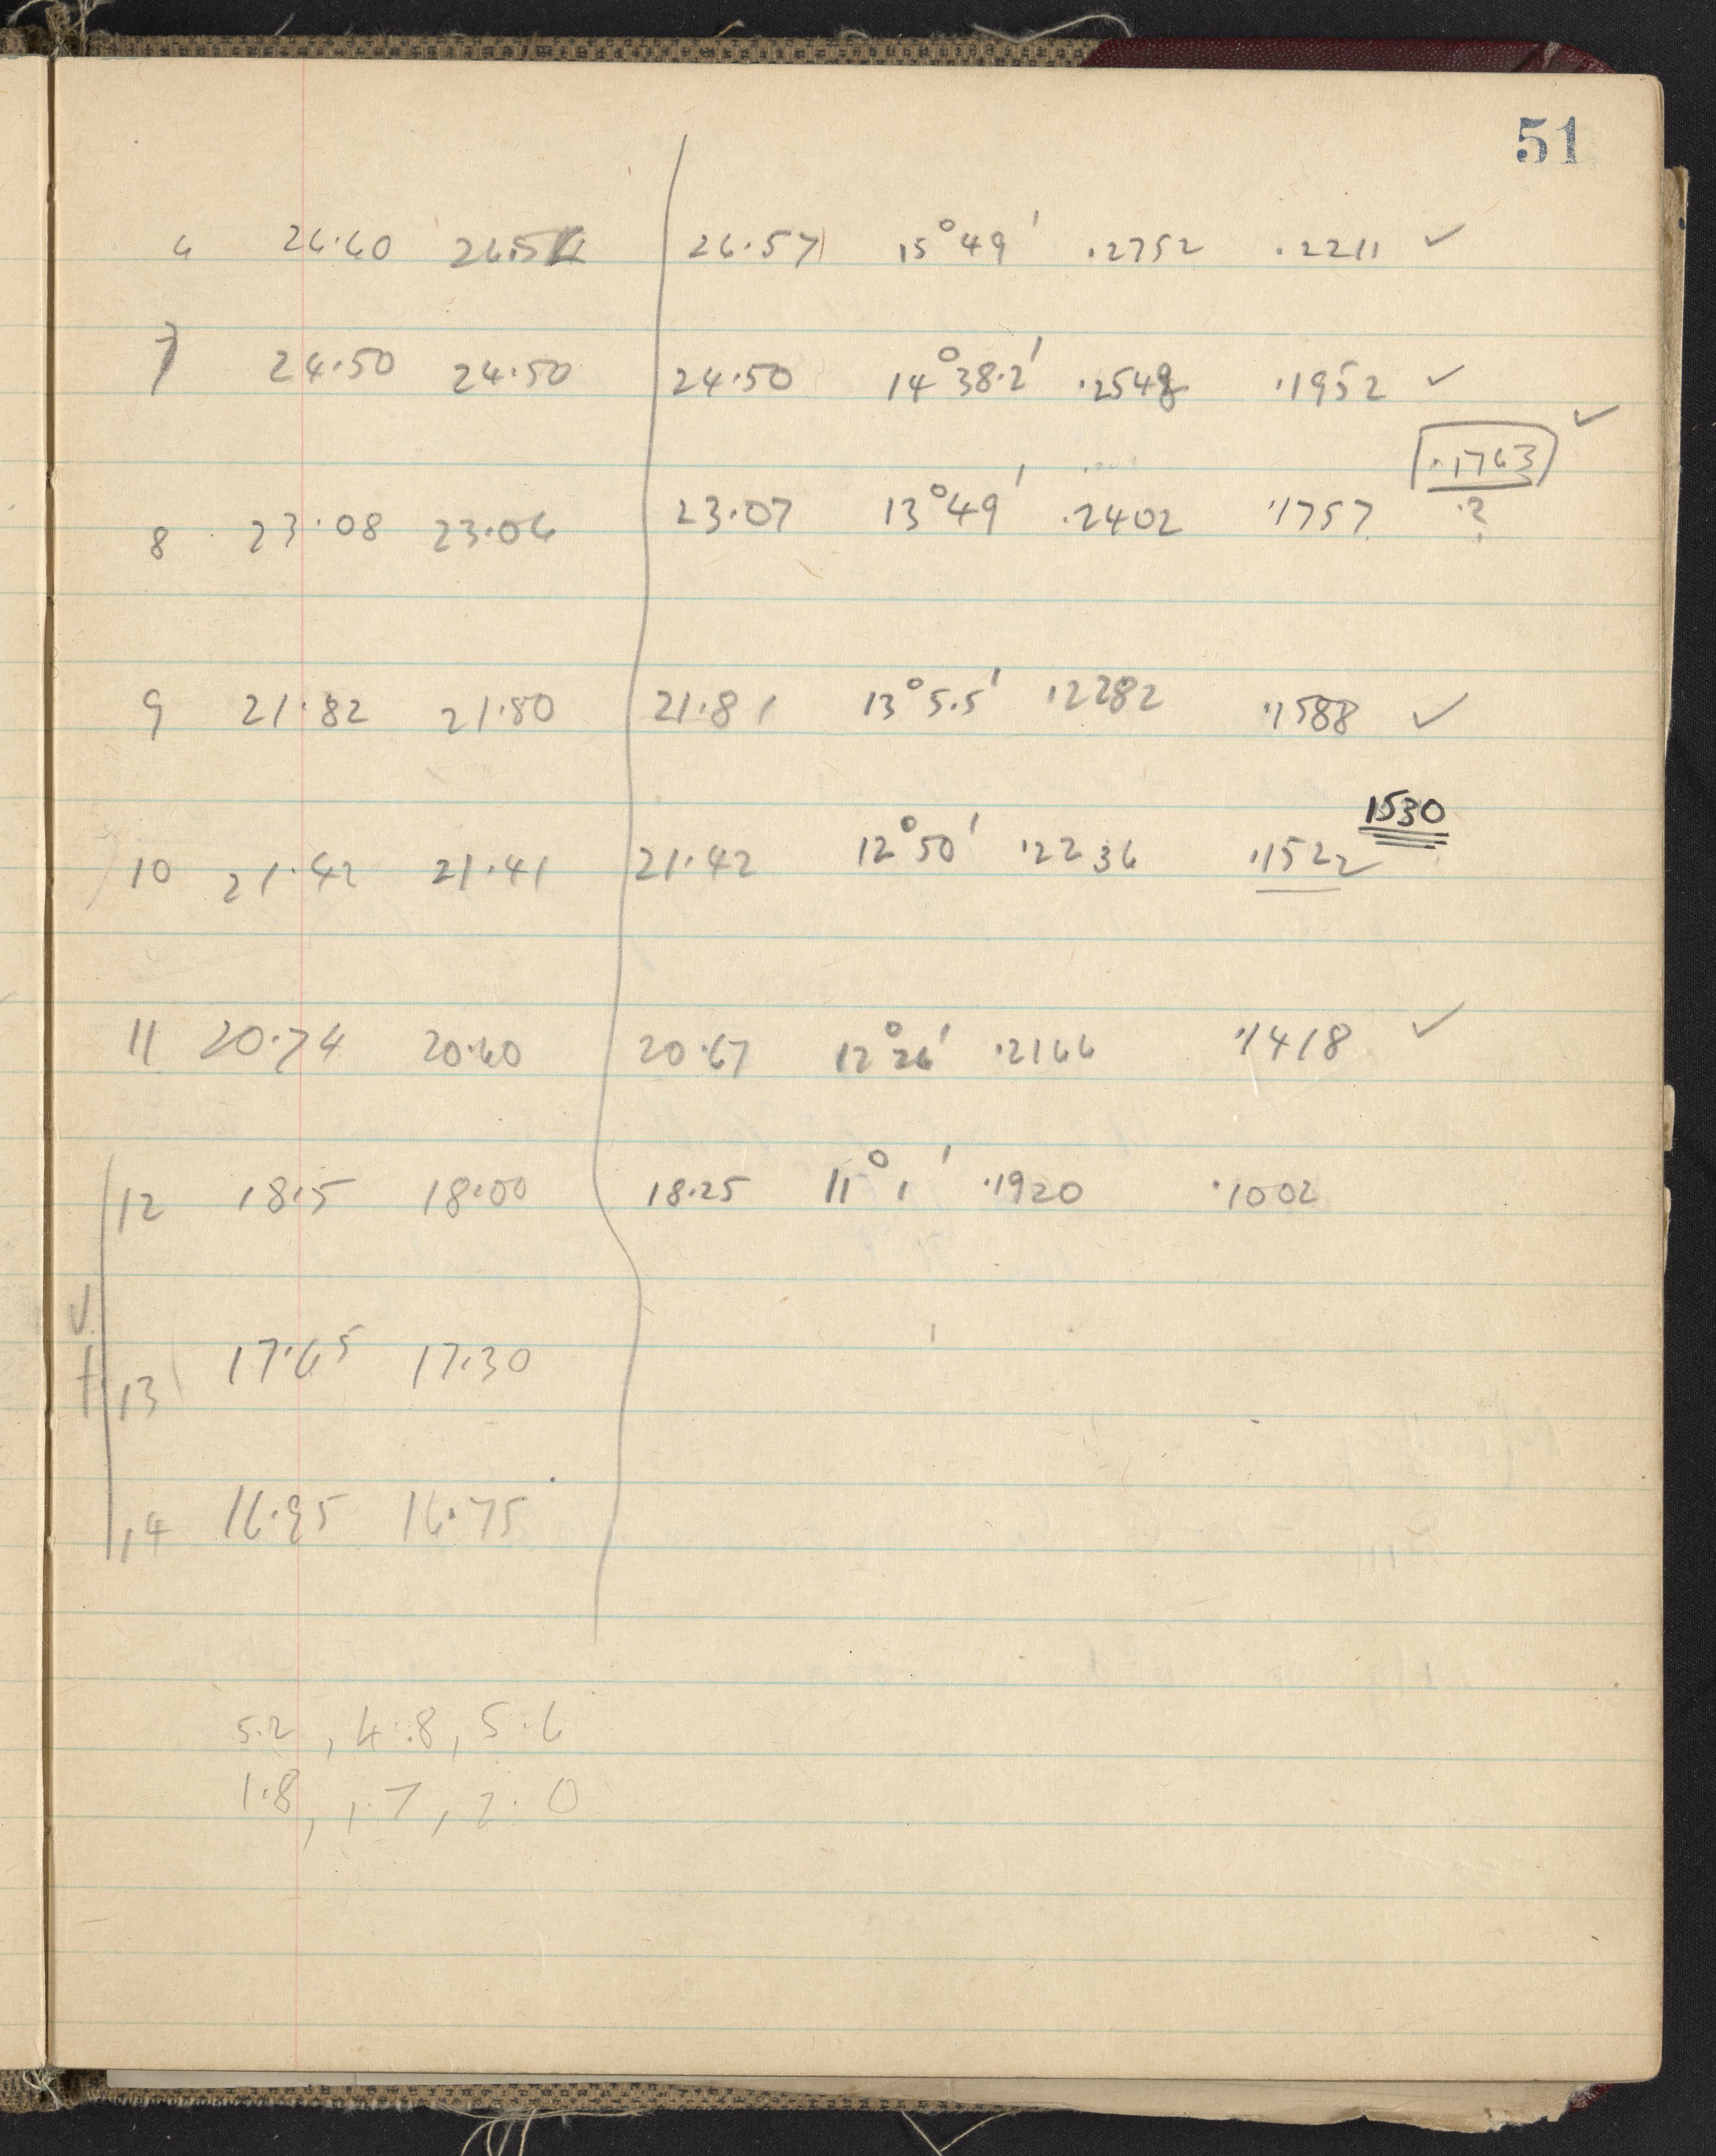 51
6 26.60 26.54 26.57 15°49' .2752 .2211 ✓
7 24.50 24.50 24.50 14°38.2' .2548 .1952 ✓
.1763 ✓
8 23.08 23.06 23.07 13°49' .2402 .1757 ?
9 21.82 21.80 21.81 13°5.5' .2282 .1588 ✓
1530
10 21.42 21.41 21.42 12°50' .2236 .1522
11 20.74 20.60 20.67 12°26' .2166 .1418 ✓
12 18.5 18.00 18.25 11°1' .1920 .1002
v.
f. 13 17.65 17.30
14 16.95 16.75
5.2, 4.8, 5.6
1.8, 1.7, 2.0